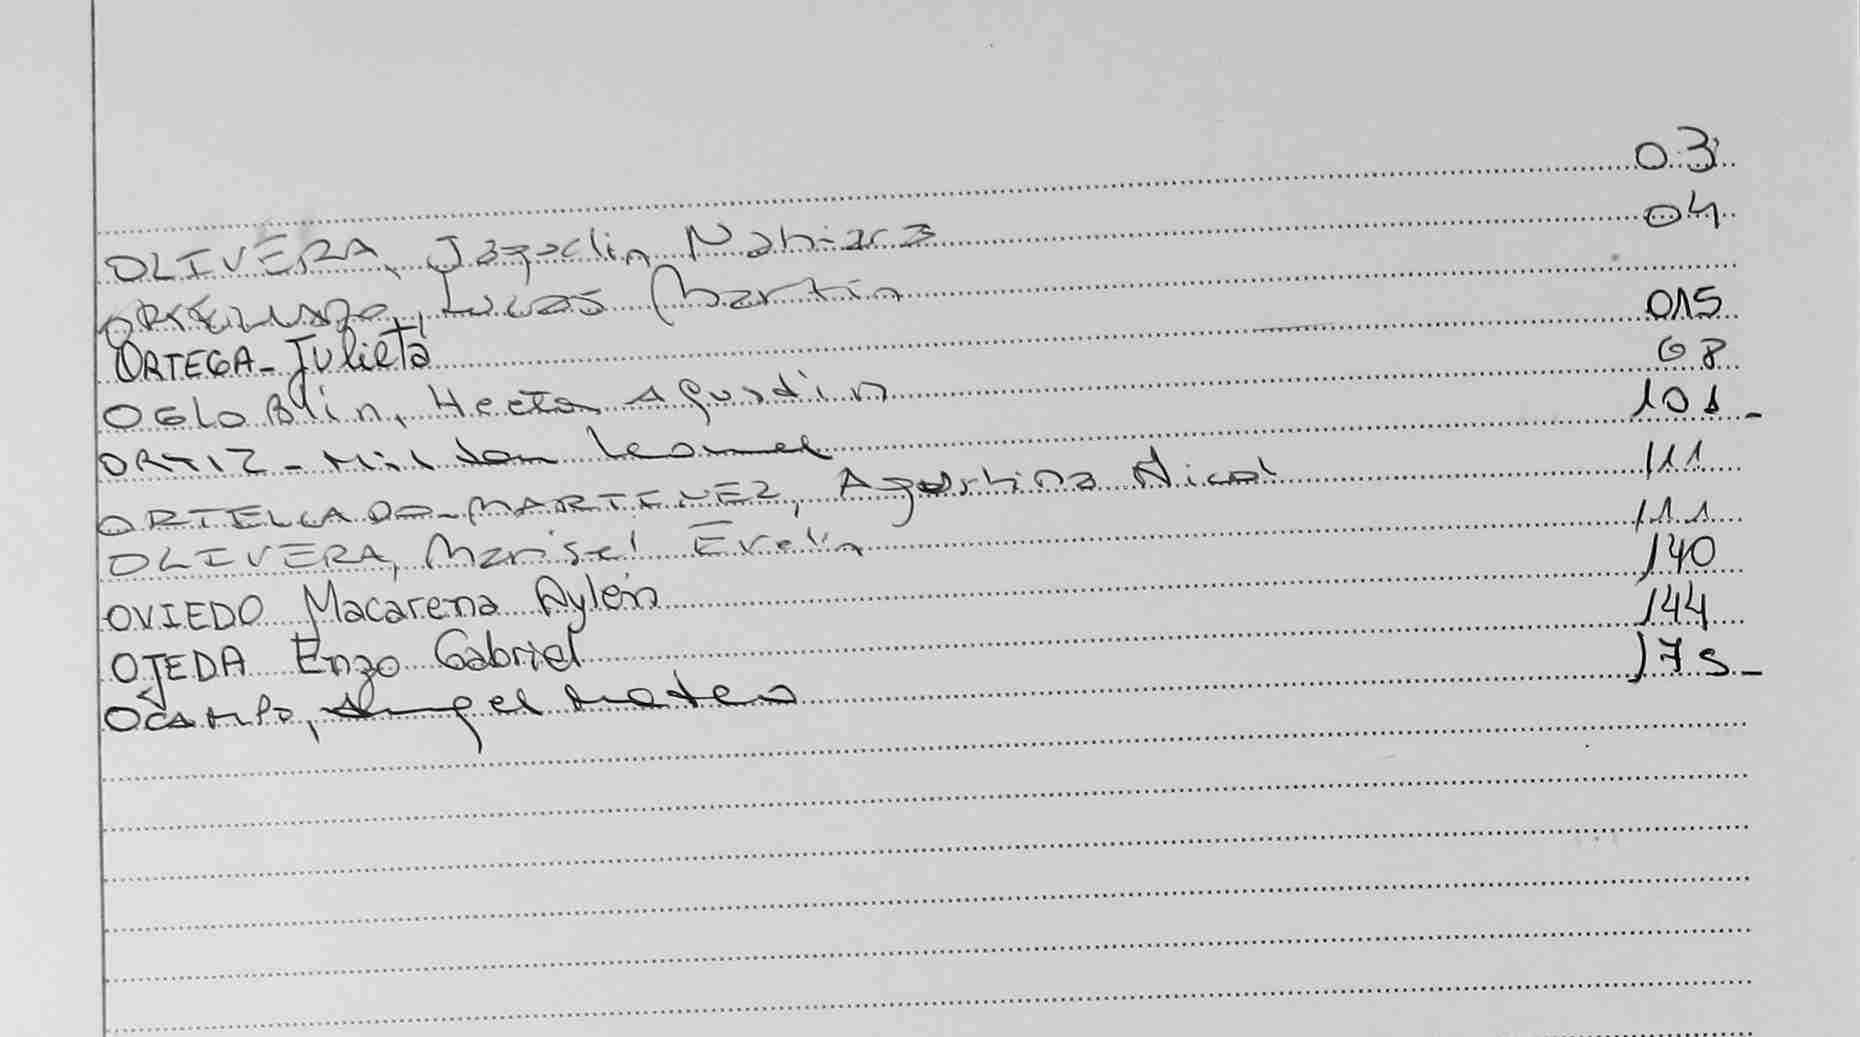 OLIVERA, Jaqaclin Nahiara 03
Lucas Martin 04
ORTEGA - Julieta 015
OGLOBlin, Hector Agustin 08
ORTIZ - Milton Leonel 101 -
ORTELLADO - MARTINEZ, Agostina Nicol 111
OLIVERA, Marisel Evelin 111
OVIEDO Macarena Aylén 140
OJEDA Enzo Gabriel 144
OCAMPO, Angel Mateo 175 -